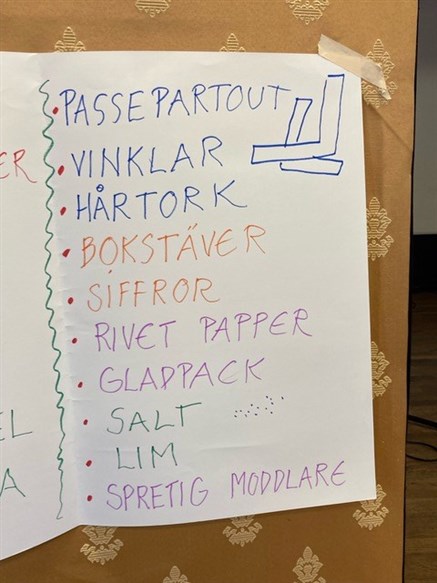 PASSEPARTOUT
ER
• VINKLAR
• HÅRTORK
• BOKSTÄVER
• SIFFROR
• RIVET PAPPER
• GLADPACK
EL
• SALT
• LIM
A
• SPRETIG MODDLARE